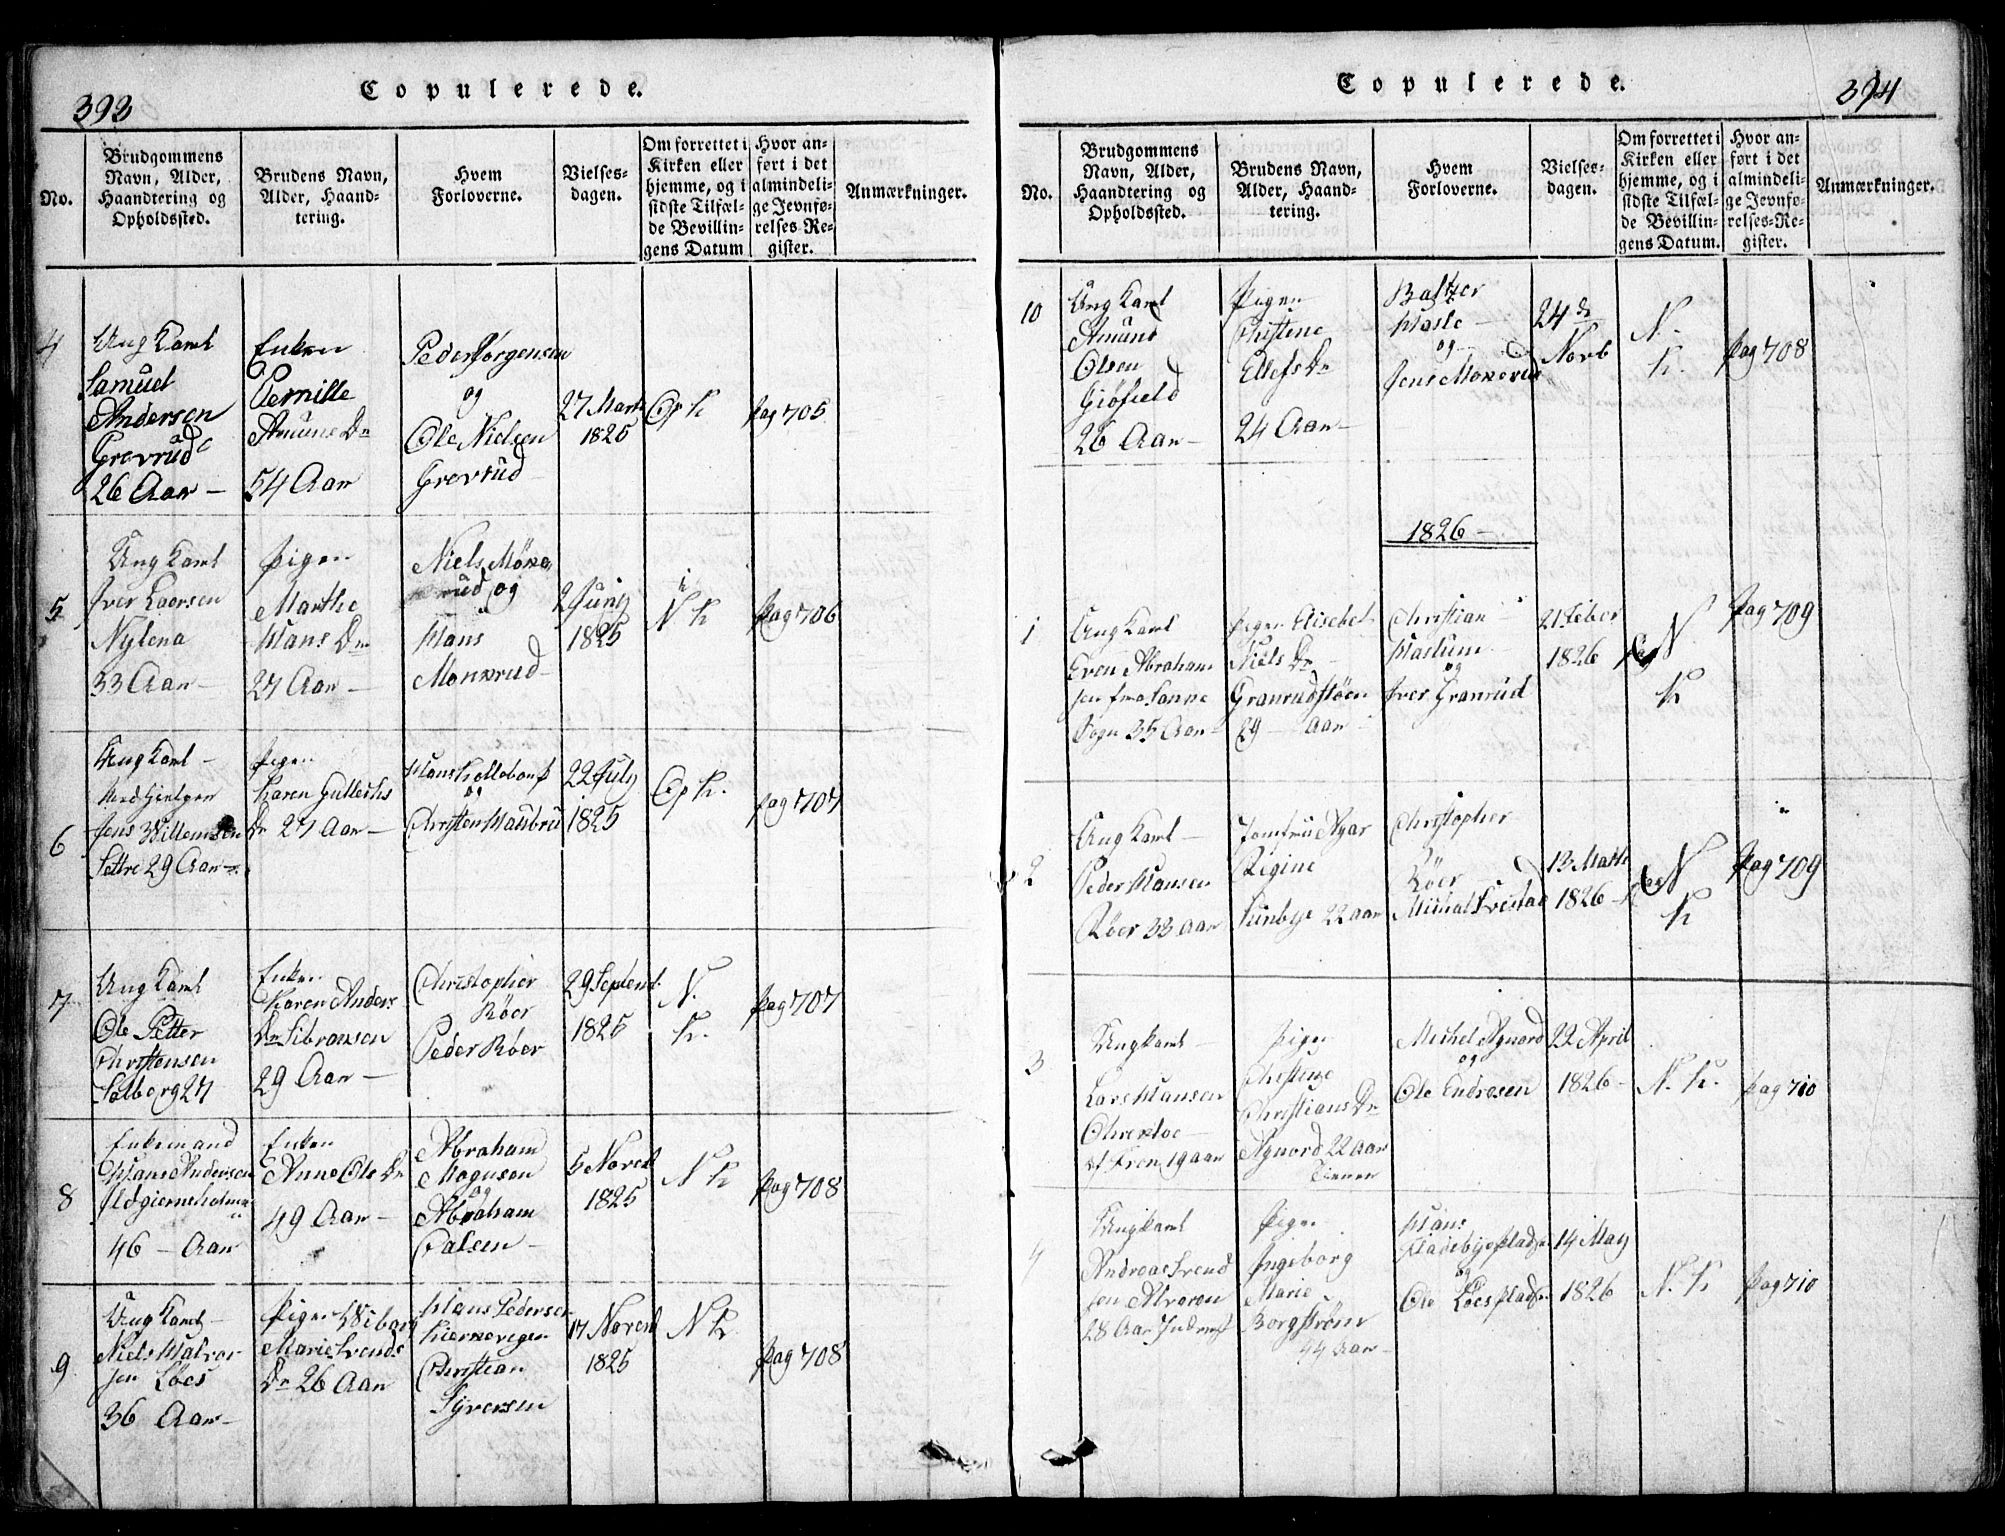 393
Copulerede.
No.
Brudgommens
Navn, Alder,
Haandtering og
Opholdssted.
Brudens Navn,
Alder, Haand-
tering.
Hvem
Forloverne.
Vielses-
dagen.
Om forrettet i
Kirken eller
hjemme, og i
sidste Tilfæl-
de Bevillin-
gens Datum
Hvor an-
ført i det
almindeli-
ge Jevnfø-
relses-Re-
gister.
Anmærkninger.
4
Ung Karl
Samuel
Andersen
Grovrud
26 Aar
Enken
Pernille
Amuns Dr
54 Aar
Peder Jørgensen
og
Ole Nielsen
Grovrud
27 Marts
1825
Op K
Pag 705
5
Ung Karl
Iver Laersen
Nylena
33 Aar
Pigen
Marthe
Hans Dr
27 Aar
Niels Møne
rud og
Hans
Monerud
2 Juny
1825
i
N K
Pag 706
6
Ung Karl
Jens Willemsen
Settre 29 Aar
Pigen
Karen Gullechs
Dr 27 Aar
Hans Kollebonß
og
Christen Haubru
22 July
1825
Op K.
pag 707
7
Ung Karl
Ole Petter
Christensen
Solberg 27
Enken
Karen Anders
Dr Sibransen
29 Aar
Christopher
Røer
Peder Røer
29 Septembr.
1825
N.
K.
Pag 707
8
Enkemand
Hans Andersen
Ildgierneholmen
46 Aar
Enken
Anne Ole Dr
49 Aar
Abraham
Mogusen
og
Abraham
Palsen
5 Novebr
1825
N K
Pag 708
9
Ung Karl
Niels Halvor
sen Løes
36 Aar
Pigen Wiborg
Marie Svends
Dr 26 Aar
Hans Pedersen
Kierkevegen
Christian
Syversen
17 Novebr
1825
N K
Pag 708
394
Copulerede.
No.
Brudgommens
Navn, Alder,
Haandtering og
Opholdssted.
Brudens Navn,
Alder, Haand-
tering.
Hvem
Forloverne.
Vielses-
dagen.
Om forrettet i
Kirken eller
hjemme, og i
sidste Tilfæl-
de Bevillin-
gens Datum.
Hvor an-
ført i det
almindeli-
ge Jevnfø-
relses-Re-
gister.
Anmærkninger.
10
Ung Karl
Amund
Olsen
Giøfield
26 Aar
Pigen
Christine
Ellefs Dr
24 Aar
Baltzer
Hasle
og
Jens Monerud
24 de
Novb
N.
K.
Pag 708
1826
1
Ung Karl
Even Abraham
sen fra Sanne
Sogn 35 Aar
Pigen Elisebet
Niels Dr
Granrudstøen
29 Aar
Christian
Haslum
og
Iver Granrud
21 Feber
1826
N
K
Pag 709
2
Ung Karl
Peder Hansen
Røer 33 Aar
Jomfru Agar
Rigine
Sunbye 22 Aar
Christopher
Røer
Michal Svestad
13 Marts
1826
N
K
Pag 709
3
Ung Karl
Lars Hansen
af Fron 19 aar
Pigen
Christine
Christians Dr
Agnord 22 Aar
Tienner
Michel Agnord
og
Ole Endresen
22 April
1826
N. K.
Pag 710
4
Ung Karl
Andreas Svend
sen Alvoren
28 Aar
Pigen
Ingeborg
Marie
Borgstrøm
44 Aar
Hans
Fladebyepladsen
og
Ole Løespladsen
14 May
1826
N. K
Pag 710